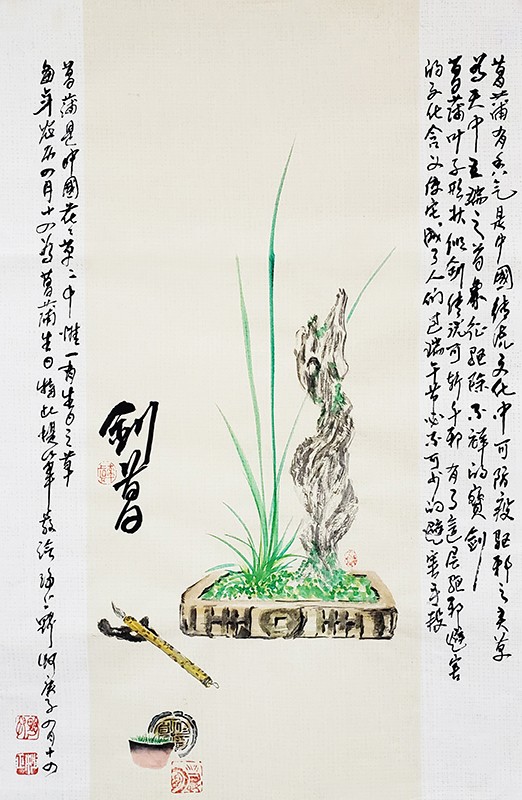 菖蒲有香气是中國传统文化中可防疫驱邪之灵草
为天中五瑞之首象征驱除不祥的寶剑
菖蒲叶子形状似剑传说可斩千邪有了这层驱邪避害
的文化含义 成了人们过端午节必不可少的避害手段
剑菖
菖蒲是中國花草之中惟一有生日之草
每年农历四月十四为菖蒲生日特此提笔敬绘 野 时庚子四月十四